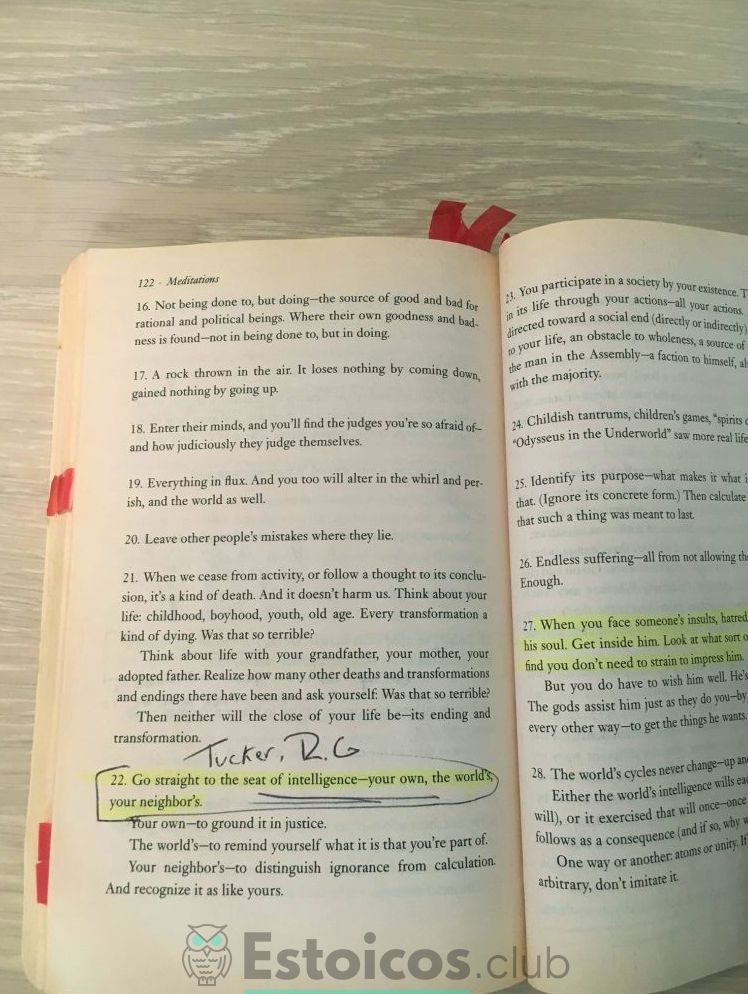 122 · Meditations
16. Not being done to, but doing—the source of good and bad for
rational and political beings. Where their own goodness and bad-
ness is found—not in being done to, but in doing.
17. A rock thrown in the air. It loses nothing by coming down,
gained nothing by going up.
18. Enter their minds, and you'll find the judges you're so afraid of—
and how judiciously they judge themselves.
19. Everything in flux. And you too will alter in the whirl and per-
ish, and the world as well.
20. Leave other people's mistakes where they lie.
21. When we cease from activity, or follow a thought to its conclu-
sion, it's a kind of death. And it doesn't harm us. Think about your
life: childhood, boyhood, youth, old age. Every transformation a
kind of dying. Was that so terrible?
Think about life with your grandfather, your mother, your
adopted father. Realize how many other deaths and transformations
and endings there have been and ask yourself: Was that so terrible?
Then neither will the close of your life be—its ending and
transformation.
Tucker, R.G
22. Go straight to the seat of intelligence—your own, the world's,
your neighbor's.
Your own—to ground it in justice.
The world's—to remind yourself what it is that you're part of.
Your neighbor's—to distinguish ignorance from calculation.
And recognize it as like yours.
23. You participate in a society by your existence.
in its life through your actions—all your actions.
directed toward a social end (directly or indirectly)
to your life, an obstacle to wholeness, a source of
the man in the Assembly—a faction to himself,
with the majority.
24. Childish tantrums, children's games, "spirits
"Odysseus in the Underworld" saw more real life
25. Identify its purpose—what makes it what
that. (Ignore its concrete form.) Then calculate
that such a thing was meant to last.
26. Endless suffering—all from not allowing
Enough.
27. When you face someone's insults, hatred
his soul. Get inside him. Look at what sort
find you don't need to strain to impress him.
But you do have to wish him well. He's
The gods assist him just as they do you—by
every other way—to get the things he wants.
28. The world's cycles never change—up
Either the world's intelligence wills
will), or it exercised that will once—once
follows as a consequence (and if so, why
One way or another: atoms or unity. If
arbitrary, don't imitate it.
Estoicos.club